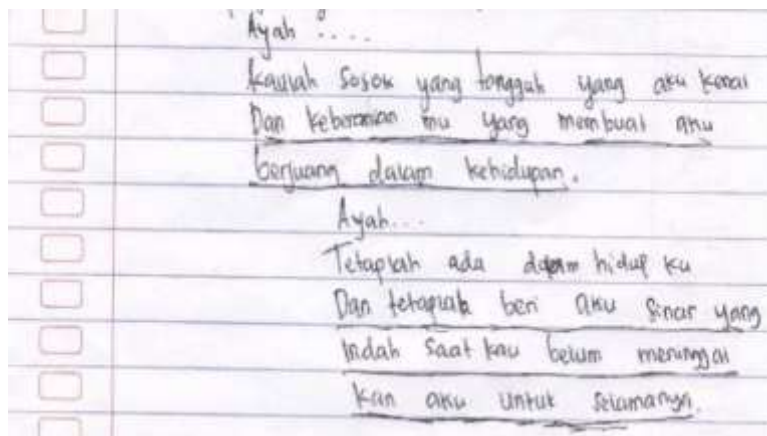 Ayah ....
Kaulah sosok yang tangguh yang aku kenal
Dan keberanian mu yang membuat aku
berjuang dalam kehidupan.
Ayah...
Tetaplah ada dalam hidup ku
Dan tetaplah beri aku sinar yang
Indah saat kau belum meninggal
kan aku untuk selamanya.